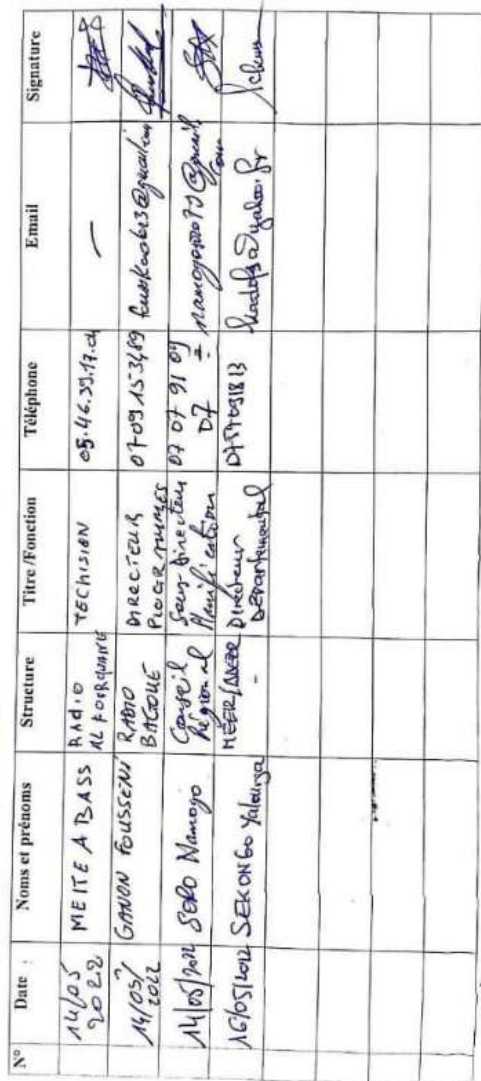 N° Date : Noms et prénoms Structure Titre /Fonction Téléphone Email Signature
14/05 2022 MEITE ABASS RADIO AL FOURQUANE TECHISIEN 05.46.39.17.04 —
14/05/ 2022 GANON FOUSSENI RADIO BAGOUE DIRECTEUR PROGRAMMES 0709153489
14/05/2022 SORO Namogo Conseil Régional Sous-Directeur Planification 07 07 91 09 07
16/05/2022 SEKONGO Directeur Départemental